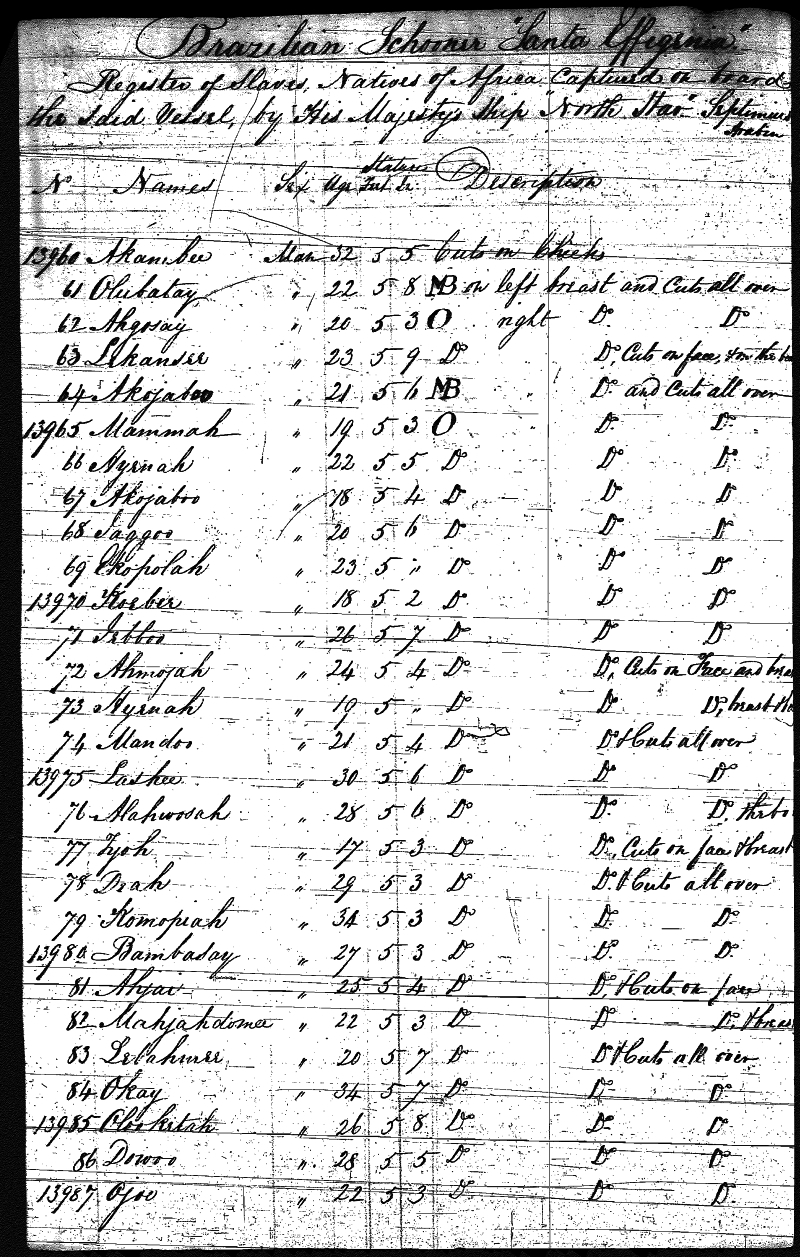 Brazilian Schooner "Santa Effigenia"
Register of Slaves, Natives of Africa Captured on board
the said Vessel, by His Majesty's Ship "North Star"
Stature
No Names Sex Age Feet In Description
13960 Akambee Man 32 5 5 Cuts on Cheeks
61 Olubatay " 22 5 8 MB on left breast and Cuts all over
62 Ahgosay " 20 5 3 O right Do Do
63 Lekansee " 23 5 9 Do Do, Cuts on face, & on the
64 Akojaboo " 21 5 6 MB " Do and Cuts all over
13965 Mammah " 19 5 3 O " Do Do
66 Ayenah " 22 5 5 Do Do Do
67 Akojaboo " 18 5 4 Do Do Do
68 Jaggoo " 20 5 6 Do Do Do
69 Ekopolah " 23 5 " Do Do Do
13970 " 18 5 2 Do Do Do
71 Jebboo " 26 5 7 Do Do Do
72 Ahmojah " 24 5 4 Do Do, Cuts on Face and
73 Ayenah " 19 5 " Do Do Do, breast &
74 Mandoo " 21 5 4 Do Do & Cuts all over
13975 Lashee " 30 5 6 Do Do Do
76 Alahwosah " 28 5 6 Do Do Do,
77 " 17 5 3 Do Do, Cuts on face & breast
78 Drah " 29 5 3 Do Do & Cuts all over
79 Komopiah " 34 5 3 Do Do Do
13980 Bambasay " 27 5 3 Do Do Do
81 Ahjai " 25 5 4 Do Do, & Cuts on face
82 Mahjahdomee " 22 5 3 Do Do Do, &
83 " 20 5 7 Do Do & Cuts all over
84 Okay " 34 5 7 Do Do Do
13985 " 26 5 8 Do Do Do
86 Dowoo " 28 5 5 Do Do Do
13987 Ojoe " 22 5 3 Do Do Do